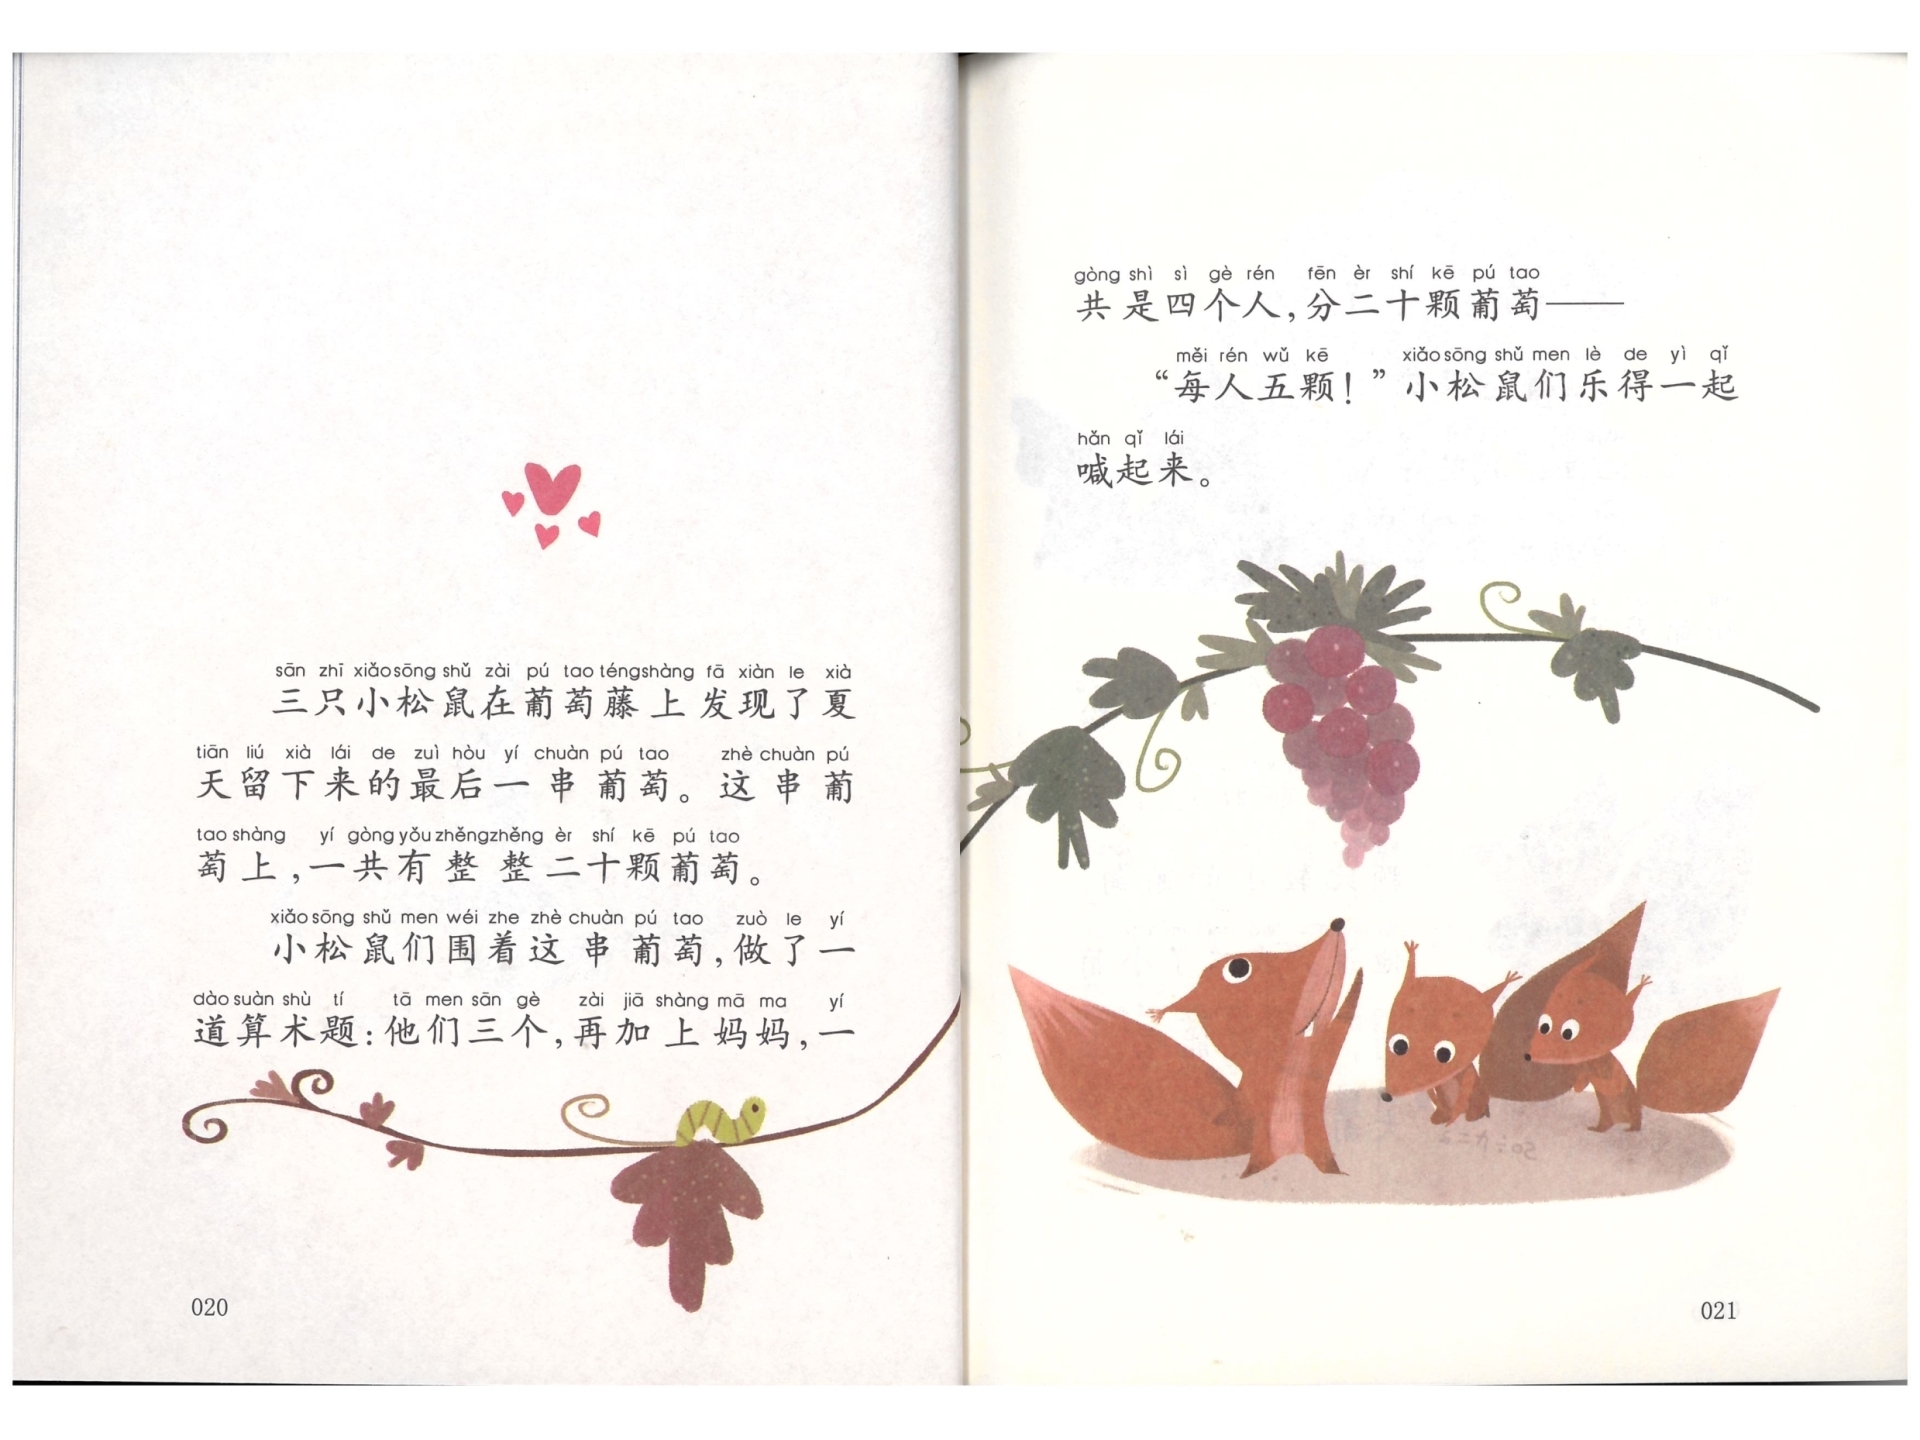 sān zhī xiǎo sōng shǔ zài pú tao téng shàng fā xiàn le xià
三只小松鼠在葡萄藤上发现了夏
tiān liú xià lái de zuì hòu yí chuàn pú tao zhè chuàn pú
天留下来的最后一串葡萄。这串葡
tao shàng yí gòng yǒu zhěng zhěng èr shí kē pú tao
萄上,一共有整整二十颗葡萄。
xiǎo sōng shǔ men wéi zhe zhè chuàn pú tao zuò le yí
小松鼠们围着这串葡萄,做了一
dào suàn shù tí tā men sān gè zài jiā shàng mā ma yí
道算术题:他们三个,再加上妈妈,一
020
gòng shì sì gè rén fēn èr shí kē pú tao
共是四个人,分二十颗葡萄——
měi rén wǔ kē xiǎo sōng shǔ men lè de yì qǐ
“每人五颗!”小松鼠们乐得一起
hǎn qǐ lái
喊起来。
021